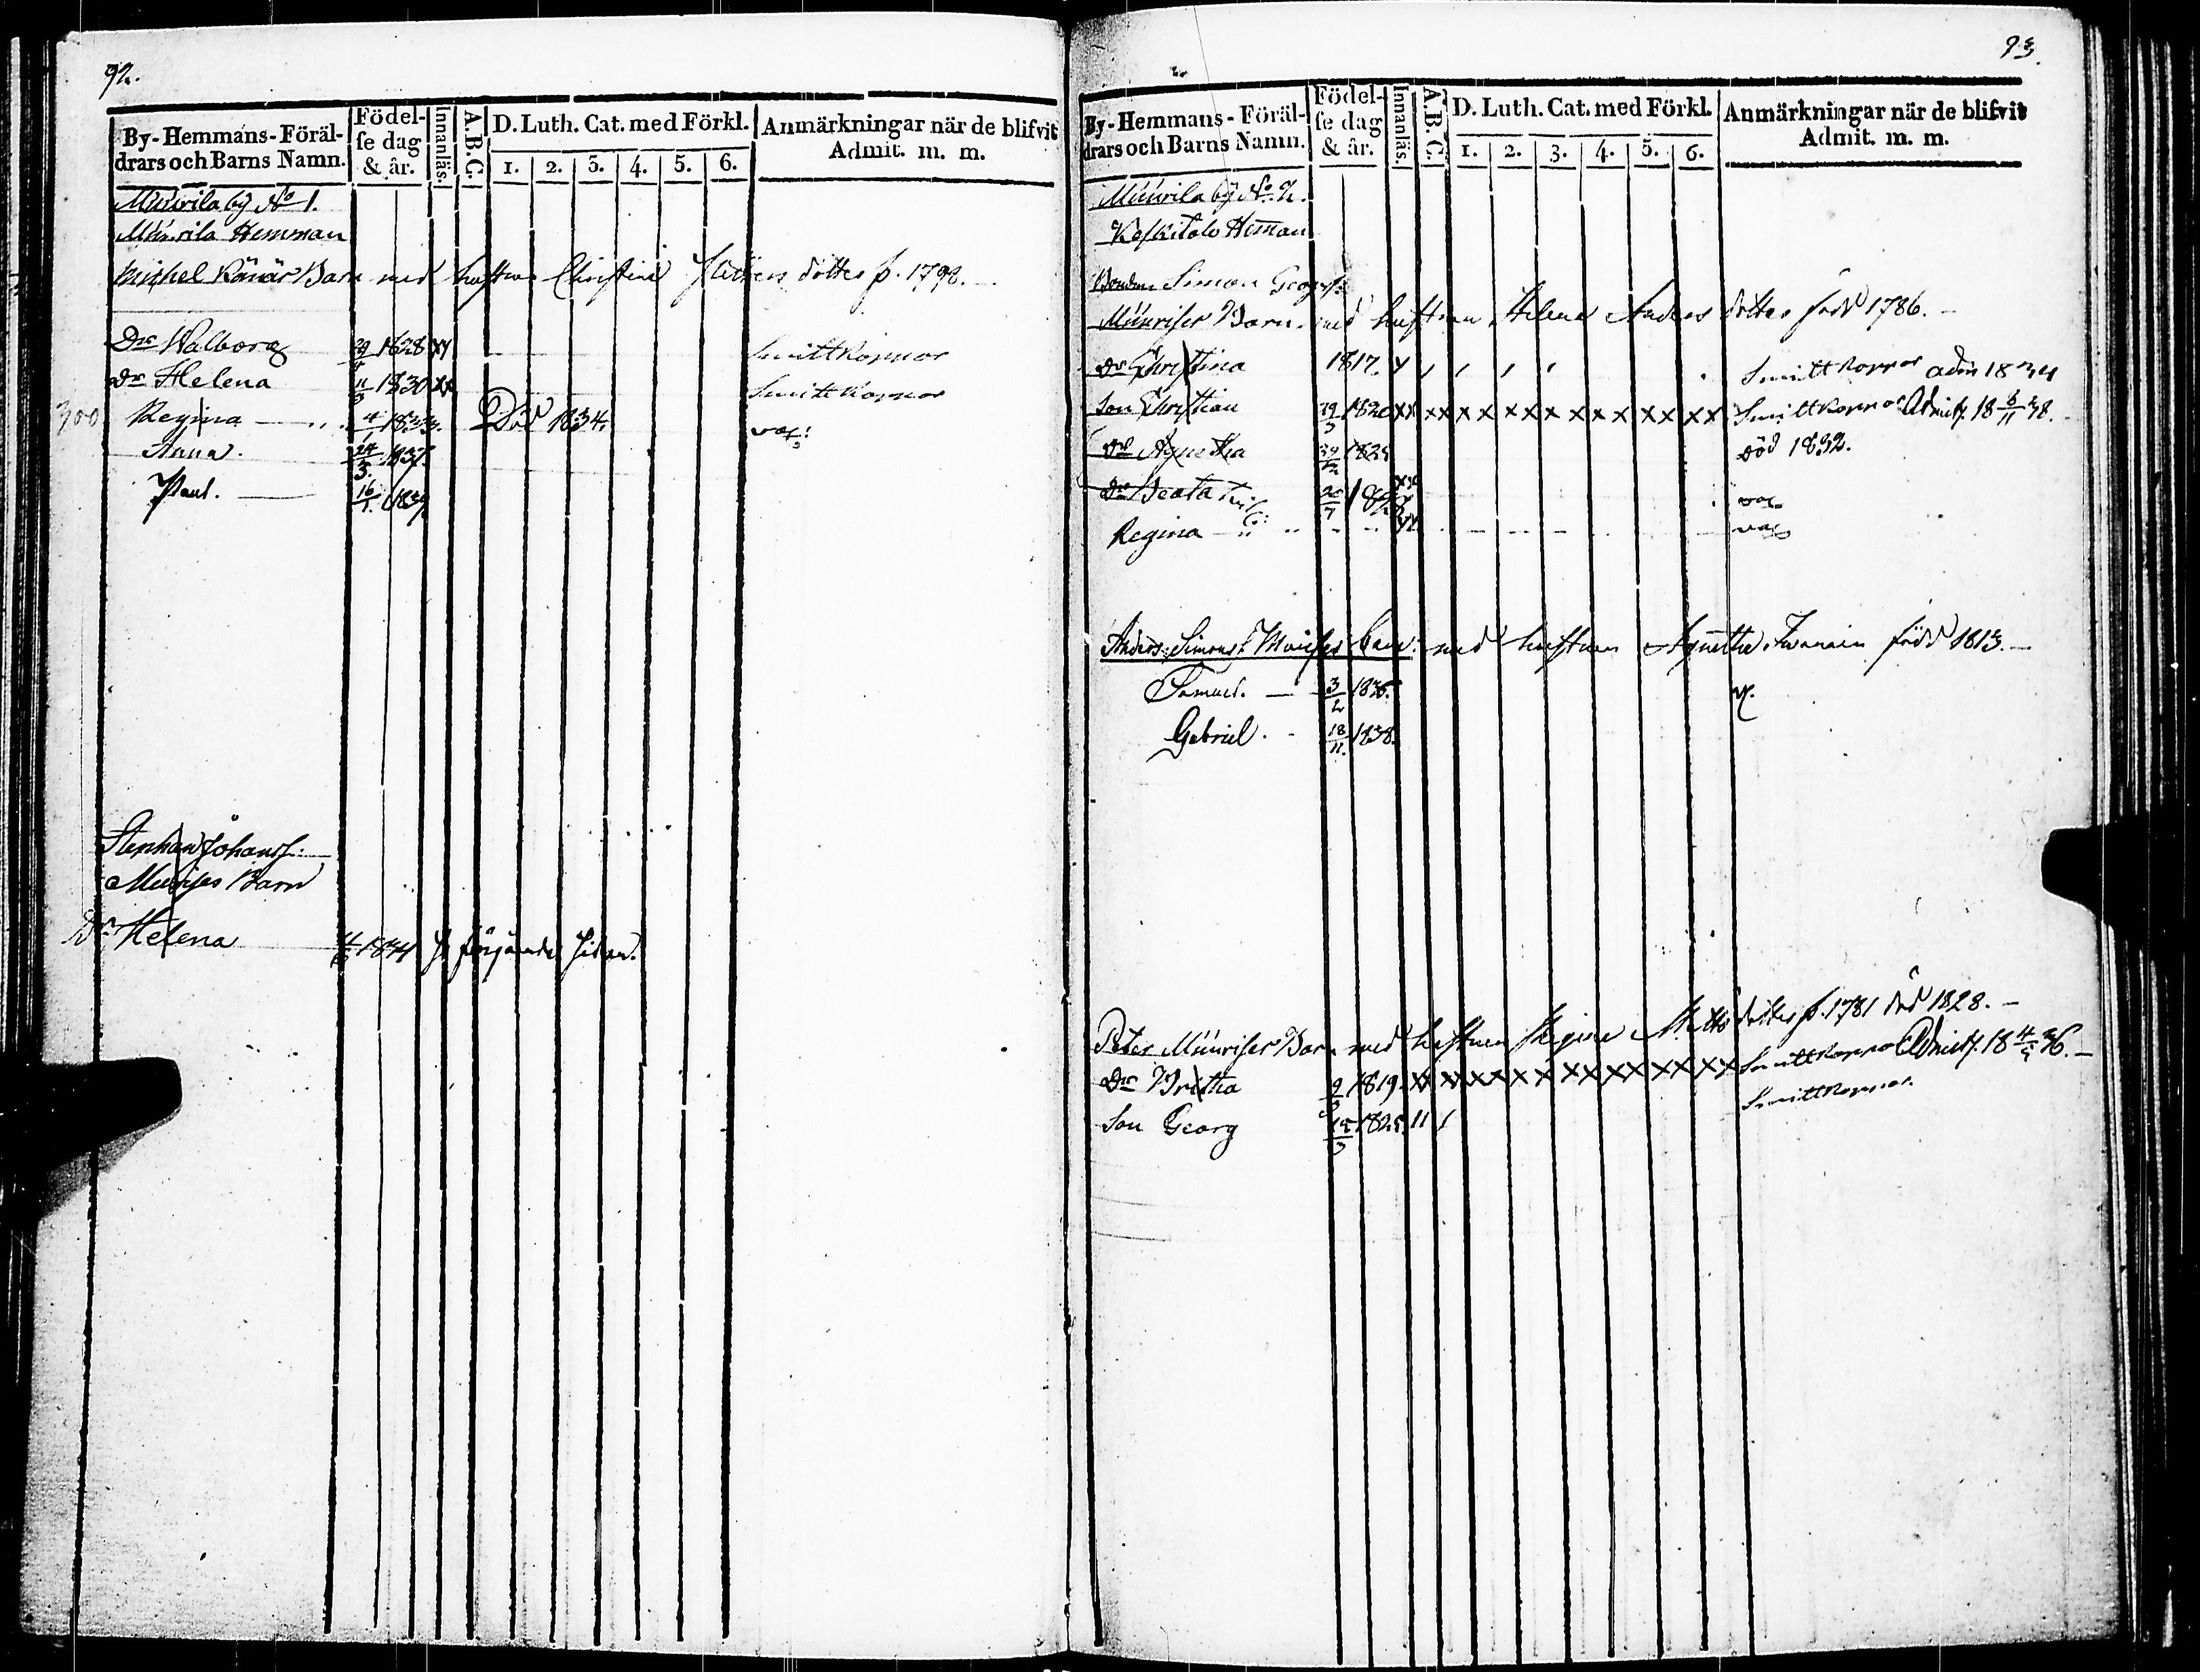 92.
By-Hemmans-Föräl-
drars och Barns Namn.
Födel-
se dag
& år.
Innanläs.
A.B.C.
D. Luth. Cat. med Förkl.
1. 2. 3. 4. 5. 6.
Anmärkningar när de blifvit
Admit. m. m.
Muurila by No 1.
Muurila Hemman
Michel Könär Barn med hustrun Christina dotter f. 1798.
Dr Walborg 1828 xx Smittkoppor
Dr Helena 11 1830 xx Smittkoppor
300 Regina 4/1 1833. Död 1834. vac:
Anna. 24/3. 1837.
Paul. 16/1. 1839
Stephan Johans.
Muurises Barn
Dr Helena följande sidan.
93.
By-Hemmans-Föräl-
drars och Barns Namn.
Födel-
se dag
& år.
Innanläs.
A.B.C.
D. Luth. Cat. med Förkl.
1. 2. 3. 4. 5. 6.
Anmärkningar när de blifvit
Admit. m. m.
Muurila by No 2.
Keskitalo Heman
Bonden Simon Georgs.
Muuriser Barn med hustrun Helena Anders dotter född 1786.
Dr Christina 1817. Smittkoppor adm 1834
Son Christian 1820 xx xx x x x x x x x x x x x Smittkoppor Admitt. 18 38.
Dr Agnetha 1825 död 1832.
Dr Beata vac
Regina vac
Anders Simons. Muurises barn med hustrun Agnetha född 1813.
Samuel. 3/2 1836. v.
Gabriel. 18/11. 1838.
Peter Muuriser Barn med hustrun Regina Matts dotter f. 1781 död 1828.
Dr Britha 1819 xx x x x x x x x x x x x x Smittkoppor Admitt. 18 36.
Son Georg 1825 11 1 Smittkoppor